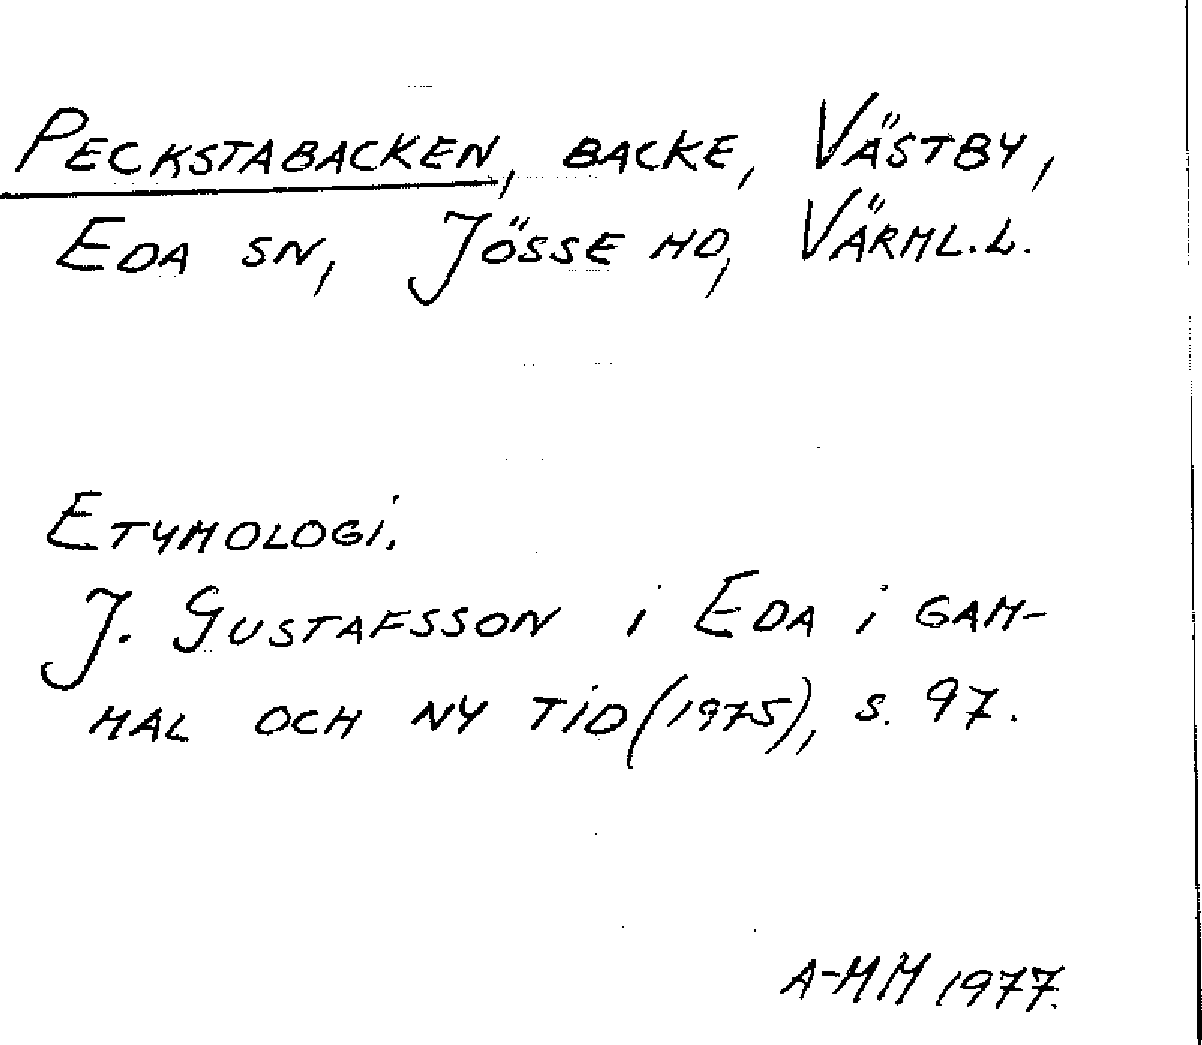 PECKSTABACKEN, BACKE, VÄSTBY,
EDA SN, JÖSSE HD, VÄRML.L.
ETYMOLOGI.
J. GUSTAFSSON i EDA i GAM-
MAL OCH NY TID (1975), S. 97.
A-MM 1977.